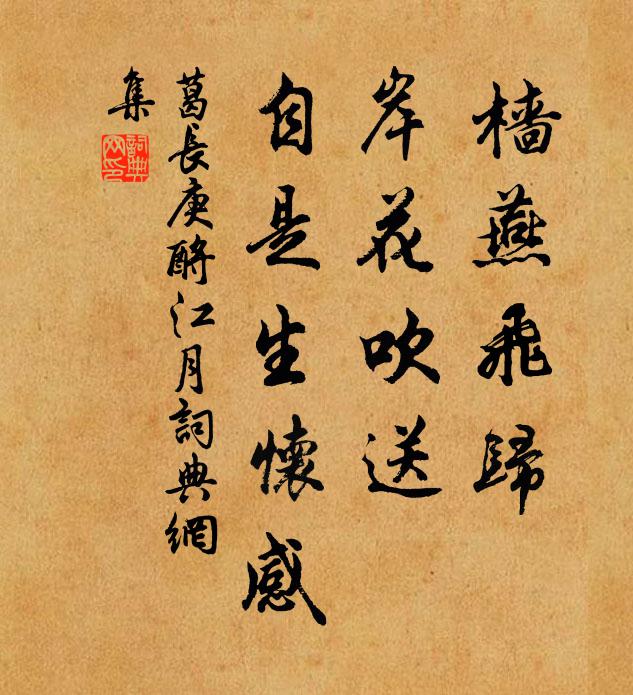 檣燕飛歸
岸花吹送
自是生懷感
葛長庚酹江月詞典網
集
詞典